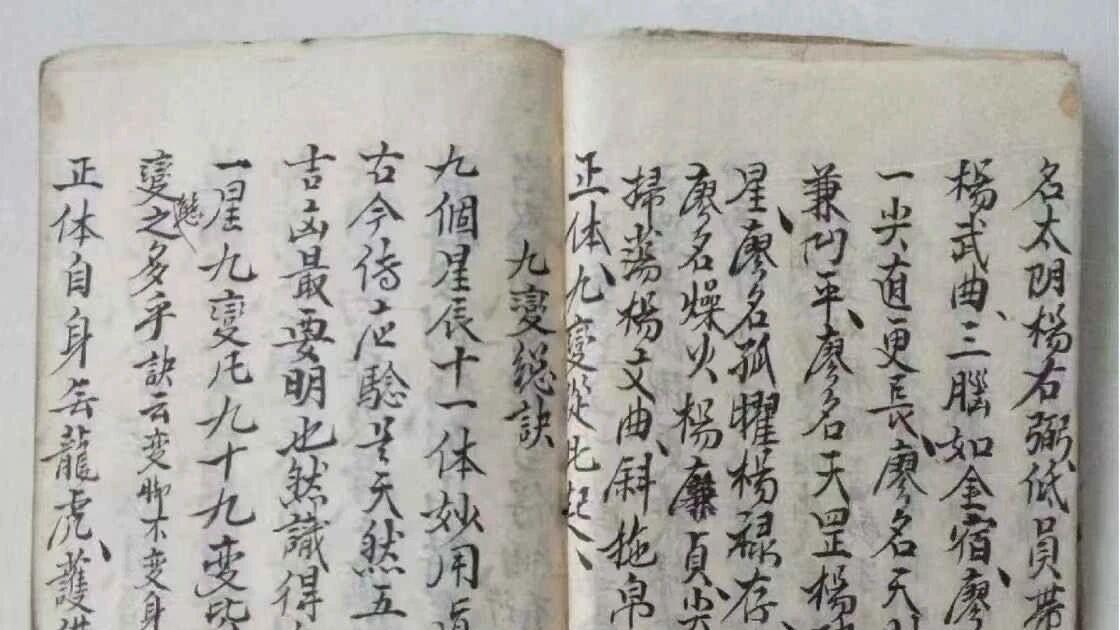 名太阴楊右弼低員帶
楊武曲三腦如金宿廖
一尖直更長廖名天
兼凹平廖名天罡楊
星廖名孤曜楊禄存
廖名燥火楊廉貞尖
掃蕩楊文曲斜拖帛
正体九變從此起
九變總訣
九個星辰十一体妙用
古今傳应驗是天然五
吉凶最要明也然識得
一星九變凡九十九变
變之多乎訣云变脚不变身
正体自身無龍虎護